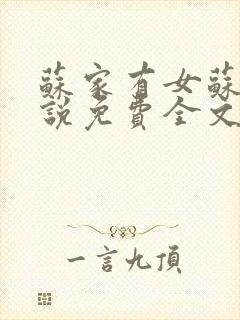 蘇家有女蘇
說免費全文
一言九頂